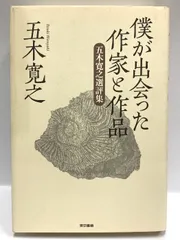 僕が出会った
作家と作品
五木寛之選評集
五木寛之
東京書籍